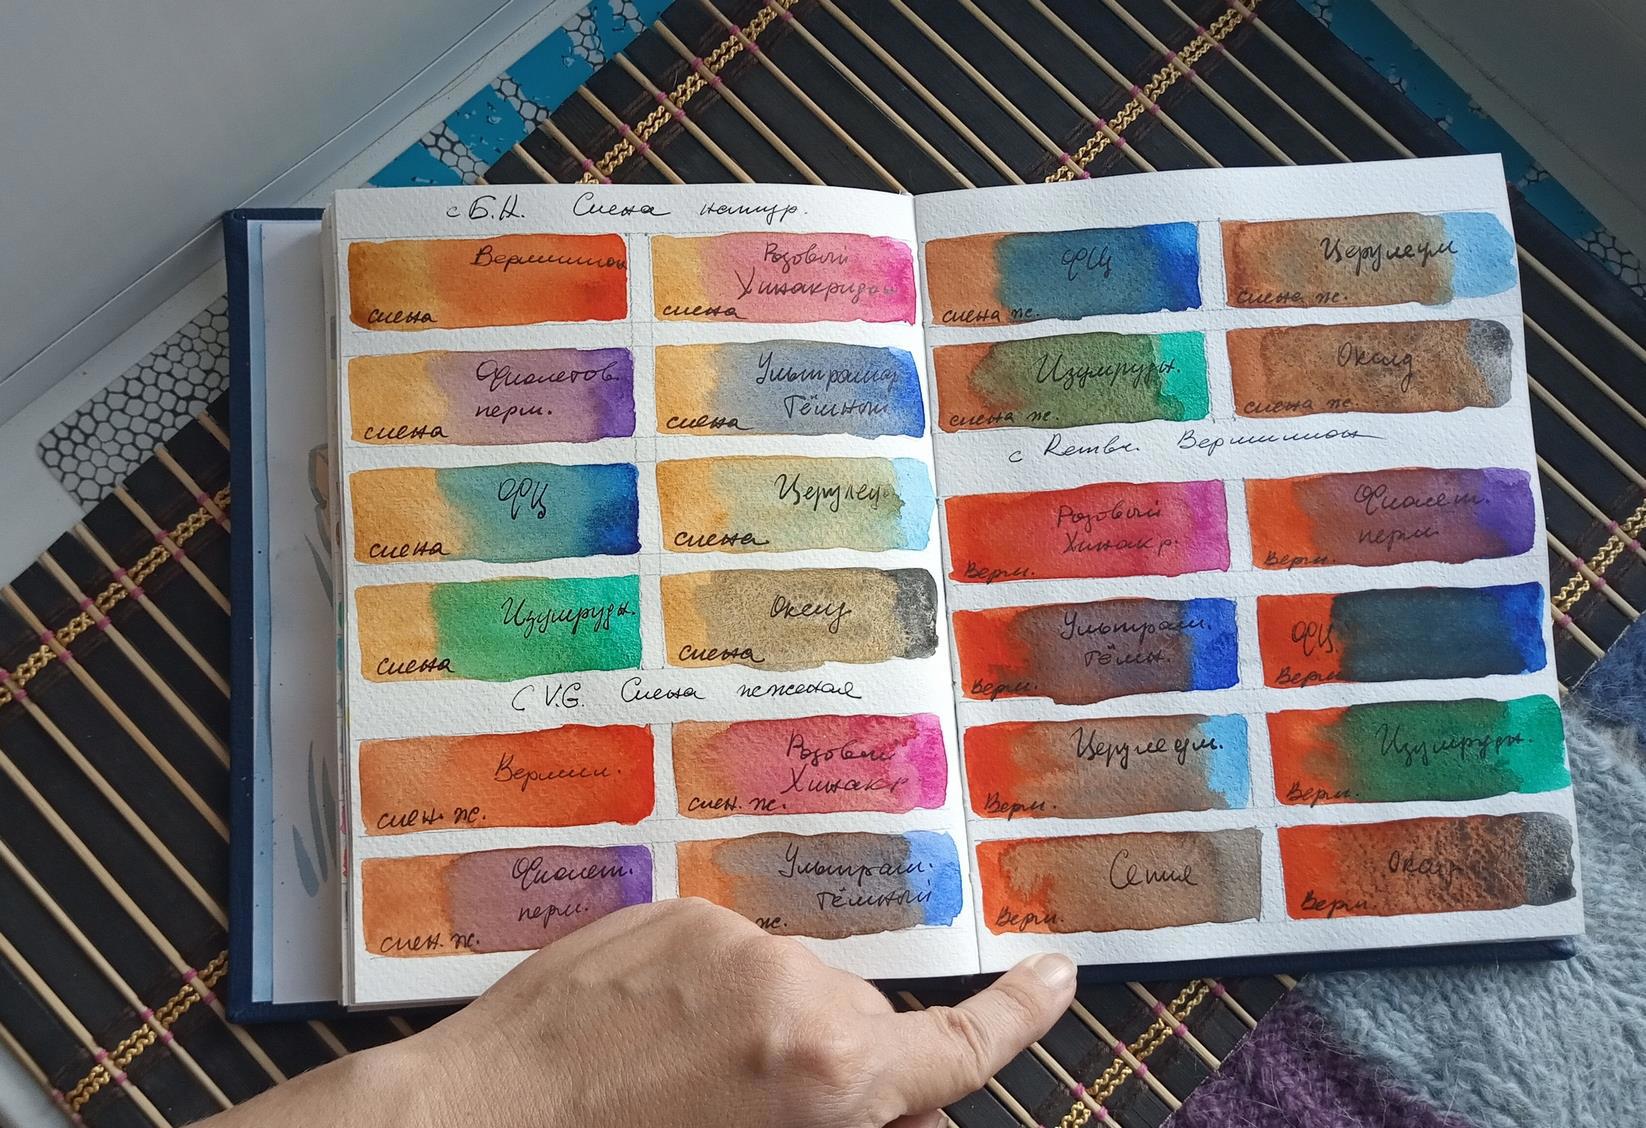 с Б.Н. Сиена натур.
Вермиллион
сиена
Розовый
Хинакридон
сиена
Фиолетов.
перм.
сиена
Ультрамар
Тёмный
сиена
ФЦ
сиена
Церулеу
сиена
Изумрудн.
сиена
Оксид
сиена
С V.G. Сиена жженая
Вермил.
сиен. ж.
Розовый
Хинакр
сиен. ж.
Фиолет.
перм.
сиен. ж.
Ультрам.
Тёмный
ж.
ФЦ
сиена ж.
Церулеум
сиена ж.
Изумрудн.
сиена ж.
Оксид
сиена ж.
с Rembr. Вермиллион
Розовый
Хинакр.
Верм.
Фиолет.
перм.
Верм.
Ультрам.
тёмн.
Верм.
ФЦ
Верм.
Церулеум.
Верм.
Изумрудн.
Верм.
Сепия
Верм.
Оксид
Верм.